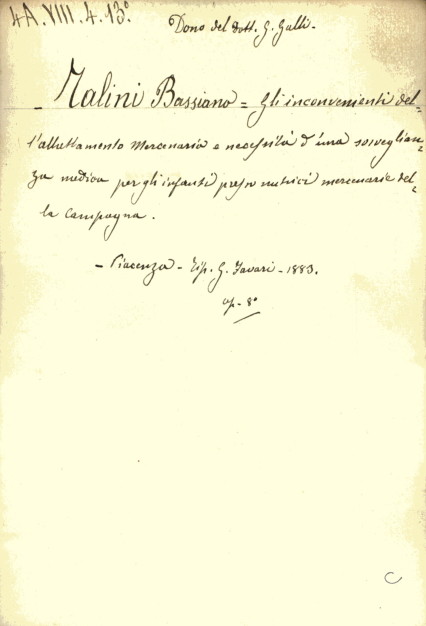 4A.VIII.4.13°
Dono del dott. G. Galli.
- Malini Bassiano = Gli inconvenienti del=
l'allattamento Mercenario e necessità d'una sorveglian=
za medica per gli infanti presso nutrici mercenarie del=
la Campagna.
- Piacenza - Tip. G. Favari - 1883.
op. 8°
C